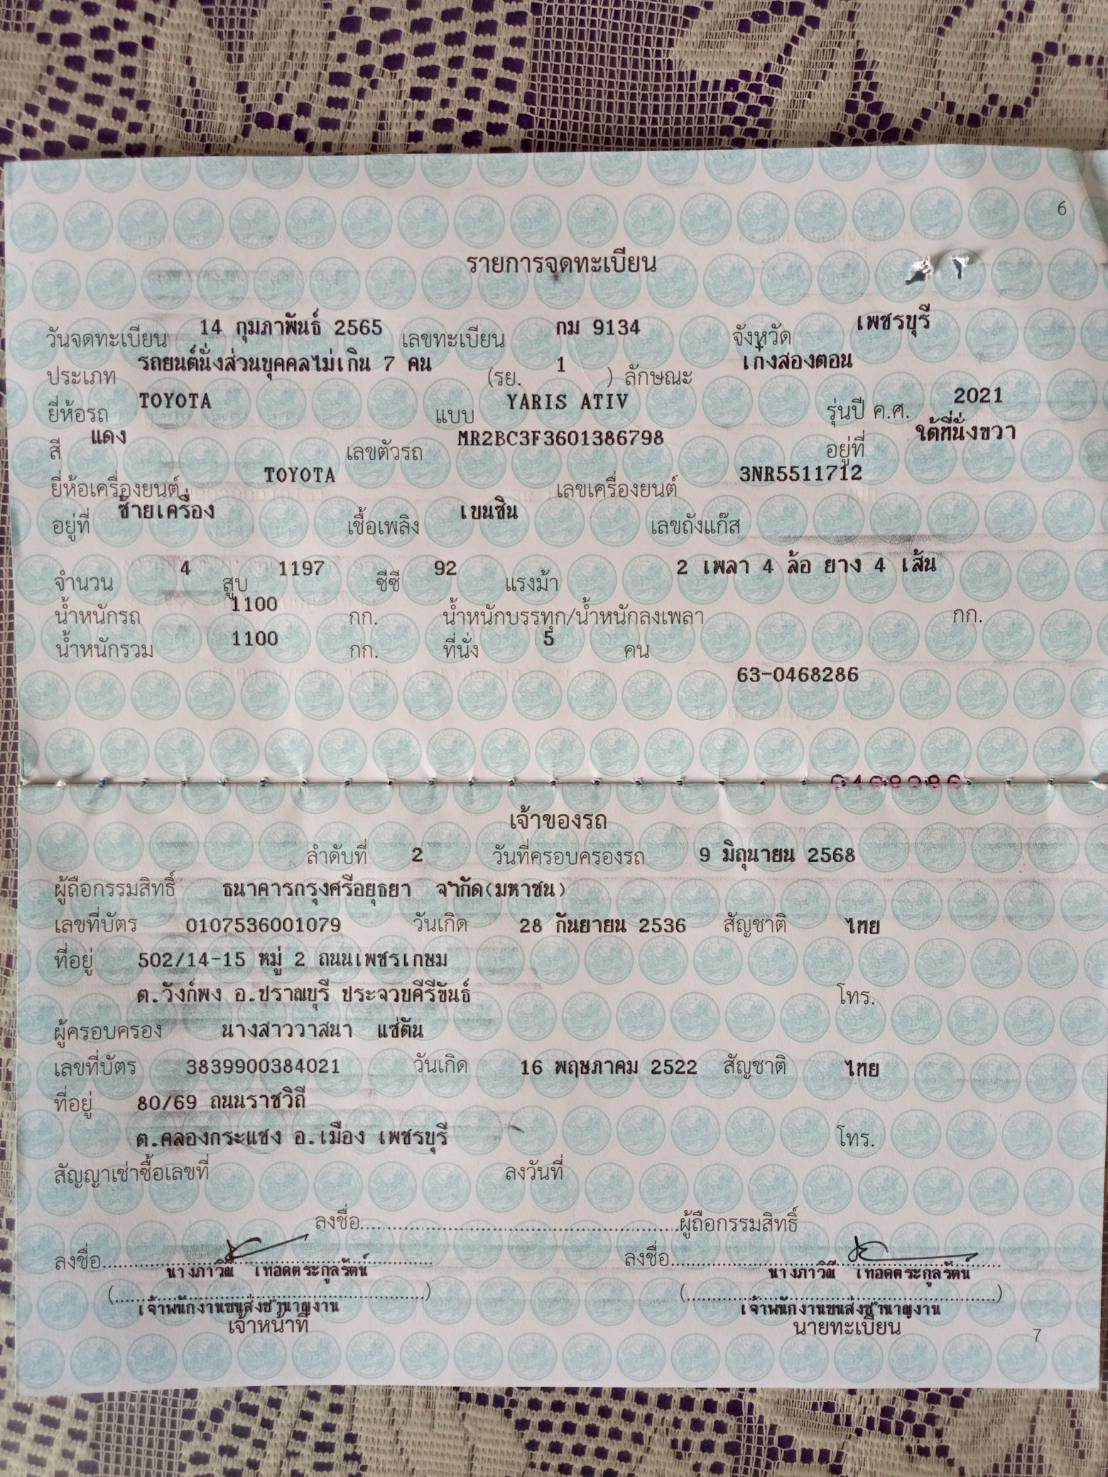 6
รายการจดทะเบียน
วันจดทะเบียน 14 กุมภาพันธ์ 2565 เลขทะเบียน กม 9134 จังหวัด เพชรบุรี
ประเภท รถยนต์นั่งส่วนบุคคลไม่เกิน 7 คน (รย. 1 ) ลักษณะ เก๋งสองตอน
ยี่ห้อรถ TOYOTA แบบ YARIS ATIV รุ่นปี ค.ศ. 2021
สี แดง เลขตัวรถ MR2BC3F3601386798 อยู่ที่ ใต้ที่นั่งขวา
ยี่ห้อเครื่องยนต์ TOYOTA เลขเครื่องยนต์ 3NR5511712
อยู่ที่ ซ้ายเครื่อง เชื้อเพลิง เบนซิน เลขถังแก๊ส
จำนวน 4 สูบ 1197 ซีซี 92 แรงม้า 2 เพลา 4 ล้อ ยาง 4 เส้น
น้ำหนักรถ 1100 กก. น้ำหนักบรรทุก/น้ำหนักลงเพลา กก.
น้ำหนักรวม 1100 กก. ที่นั่ง 5 คน
63-0468286
เจ้าของรถ
ลำดับที่ 2 วันที่ครอบครองรถ 9 มิถุนายน 2568
ผู้ถือกรรมสิทธิ์ ธนาคารกรุงศรีอยุธยา จำกัด(มหาชน)
เลขที่บัตร 0107536001079 วันเกิด 28 กันยายน 2536 สัญชาติ ไทย
ที่อยู่ 502/14-15 หมู่ 2 ถนนเพชรเกษม
ต.วังก์พง อ.ปราณบุรี ประจวบคีรีขันธ์ โทร.
ผู้ครอบครอง นางสาววาสนา แซ่ตัน
เลขที่บัตร 3839900384021 วันเกิด 16 พฤษภาคม 2522 สัญชาติ ไทย
ที่อยู่ 80/69 ถนนราชวิถี
ต.คลองกระแชง อ.เมือง เพชรบุรี โทร.
สัญญาเช่าซื้อเลขที่ ลงวันที่
ลงชื่อ..........ผู้ถือกรรมสิทธิ์
ลงชื่อ.......... ลงชื่อ..........
นางภาวิณี เทอดตระกูลรัตน์ นางภาวิณี เทอดตระกูลรัตน์
(..........) (..........)
เจ้าพนักงานขนส่งชำนาญงาน เจ้าพนักงานขนส่งชำนาญงาน
เจ้าหน้าที่ นายทะเบียน
7